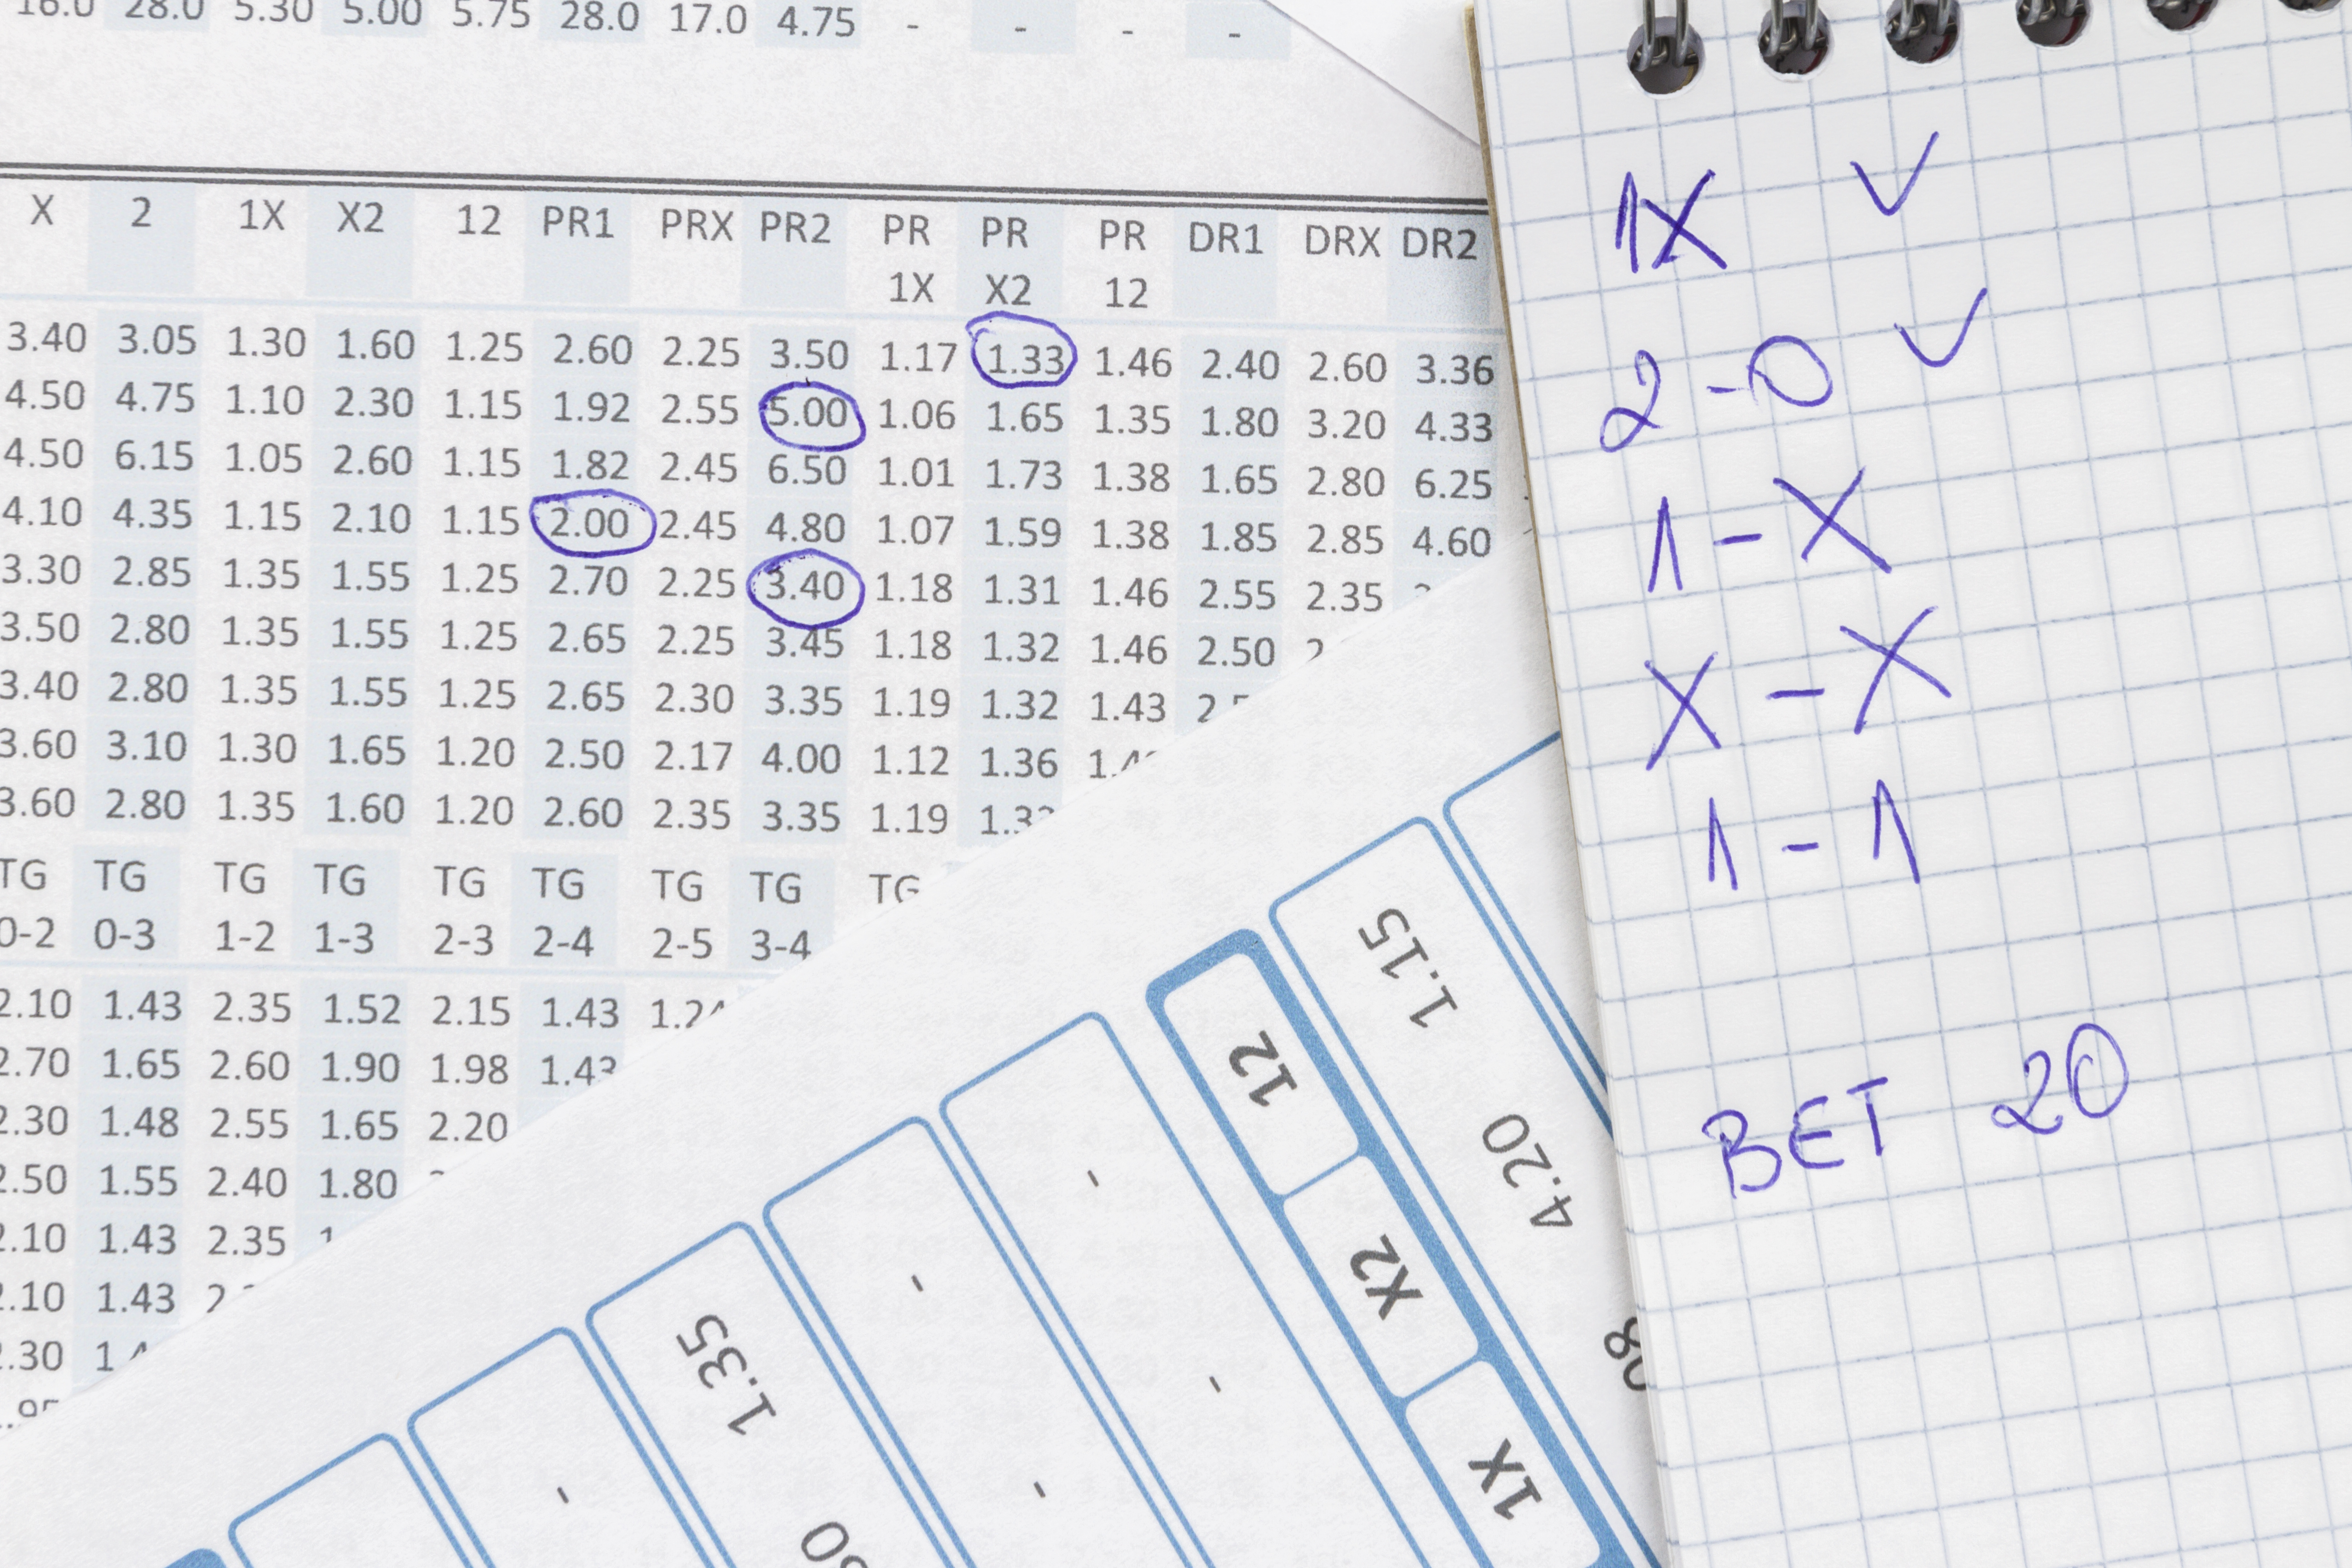 16.0 28.0 5.30 5.00 5.75 28.0 17.0 4.75 - - - -
X 2 1X X2 12 PR1 PRX PR2 PR PR PR DR1 DRX DR2
1X X2 12
3.40 3.05 1.30 1.60 1.25 2.60 2.25 3.50 1.17 1.33 1.46 2.40 2.60 3.36
4.50 4.75 1.10 2.30 1.15 1.92 2.55 5.00 1.06 1.65 1.35 1.80 3.20 4.33
4.50 6.15 1.05 2.60 1.15 1.82 2.45 6.50 1.01 1.73 1.38 1.65 2.80 6.25
4.10 4.35 1.15 2.10 1.15 2.00 2.45 4.80 1.07 1.59 1.38 1.85 2.85 4.60
3.30 2.85 1.35 1.55 1.25 2.70 2.25 3.40 1.18 1.31 1.46 2.55 2.35
3.50 2.80 1.35 1.55 1.25 2.65 2.25 3.45 1.18 1.32 1.46 2.50
3.40 2.80 1.35 1.55 1.25 2.65 2.30 3.35 1.19 1.32 1.43
3.60 3.10 1.30 1.65 1.20 2.50 2.17 4.00 1.12 1.36
3.60 2.80 1.35 1.60 1.20 2.60 2.35 3.35 1.19
TG TG TG TG TG TG TG TG TG
0-2 0-3 1-2 1-3 2-3 2-4 2-5 3-4
2.10 1.43 2.35 1.52 2.15 1.43
2.70 1.65 2.60 1.90 1.98 1.43
2.30 1.48 2.55 1.65 2.20
2.50 1.55 2.40 1.80
2.10 1.43 2.35
2.10 1.43
2.30
1.15
4.20
12
X2
1X
1.35
- - - - -
1X ✓
2-0 ✓
1-X
X-X
1-1
BET 20